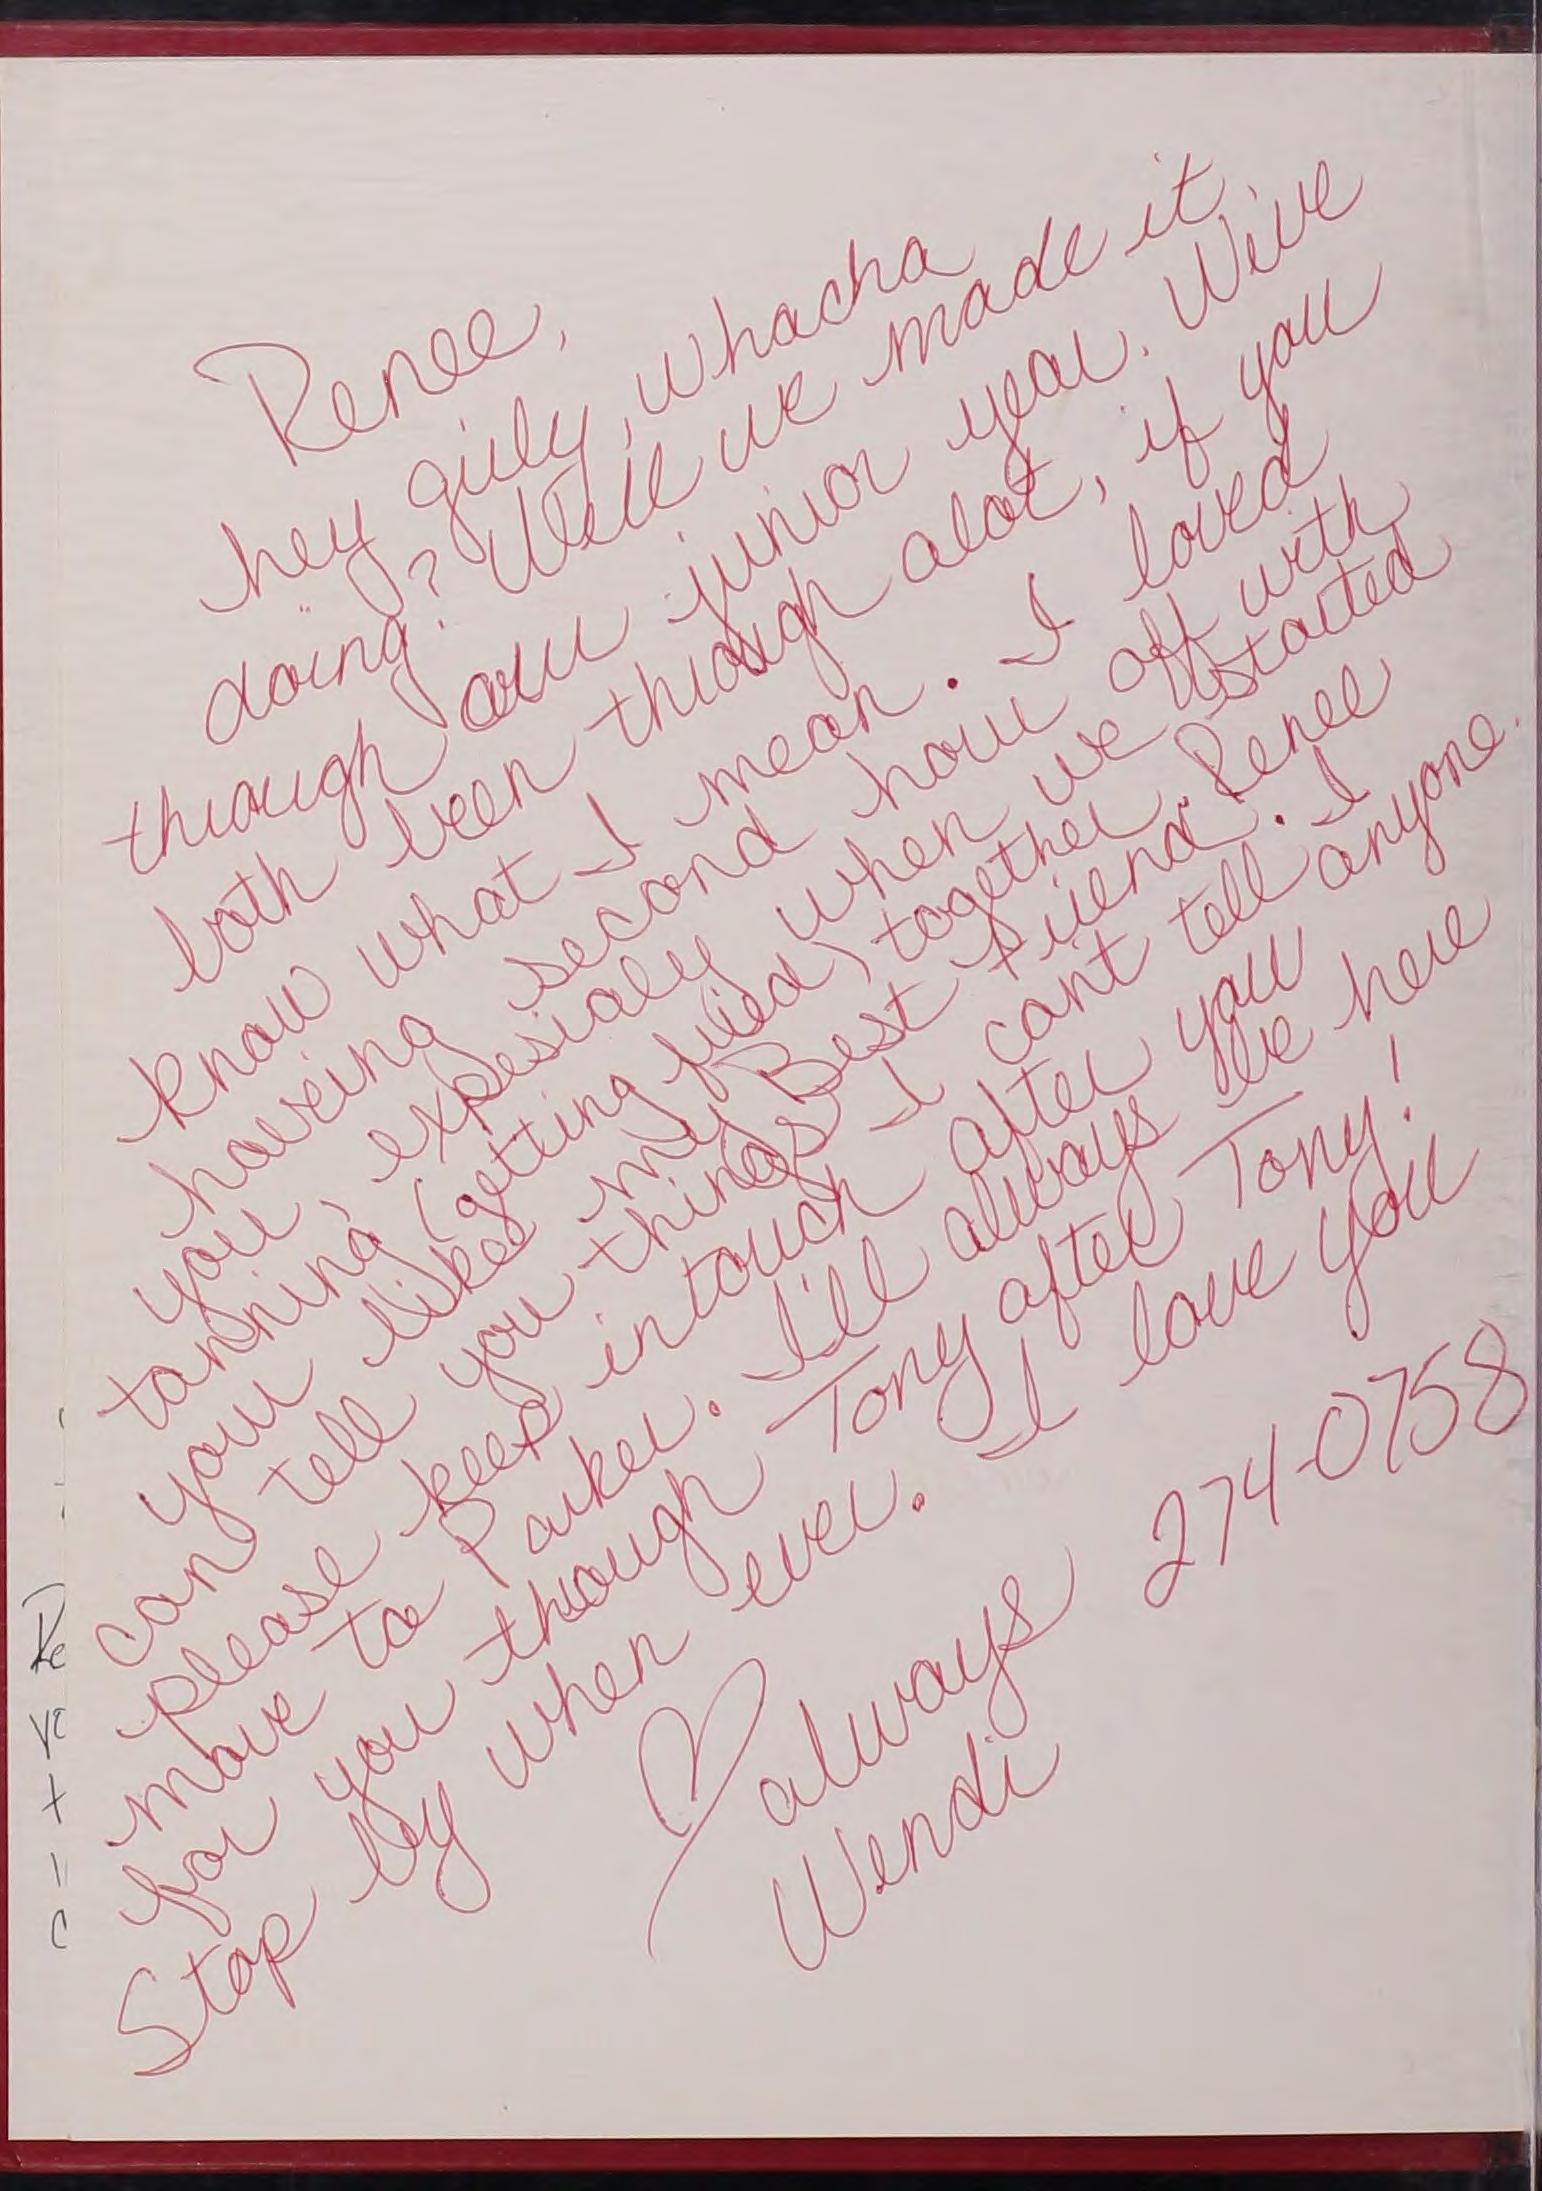 Renee,
hey girly, whacha
doing? Well we made it
through our junior year. We've
both been through alot, if you
know what I mean. I loved
having second hour off with
you, expesialy when we started
tanning (getting fried) together. Renee
your like my Best friend. I
can tell you things I cant tell anyone.
please keep in touch after you
move to Parker. I'll always be here
for you through Tony after Tony!
Stop by when ever. I love you
♡ always 274-0758
Wendi
Re
ve
t